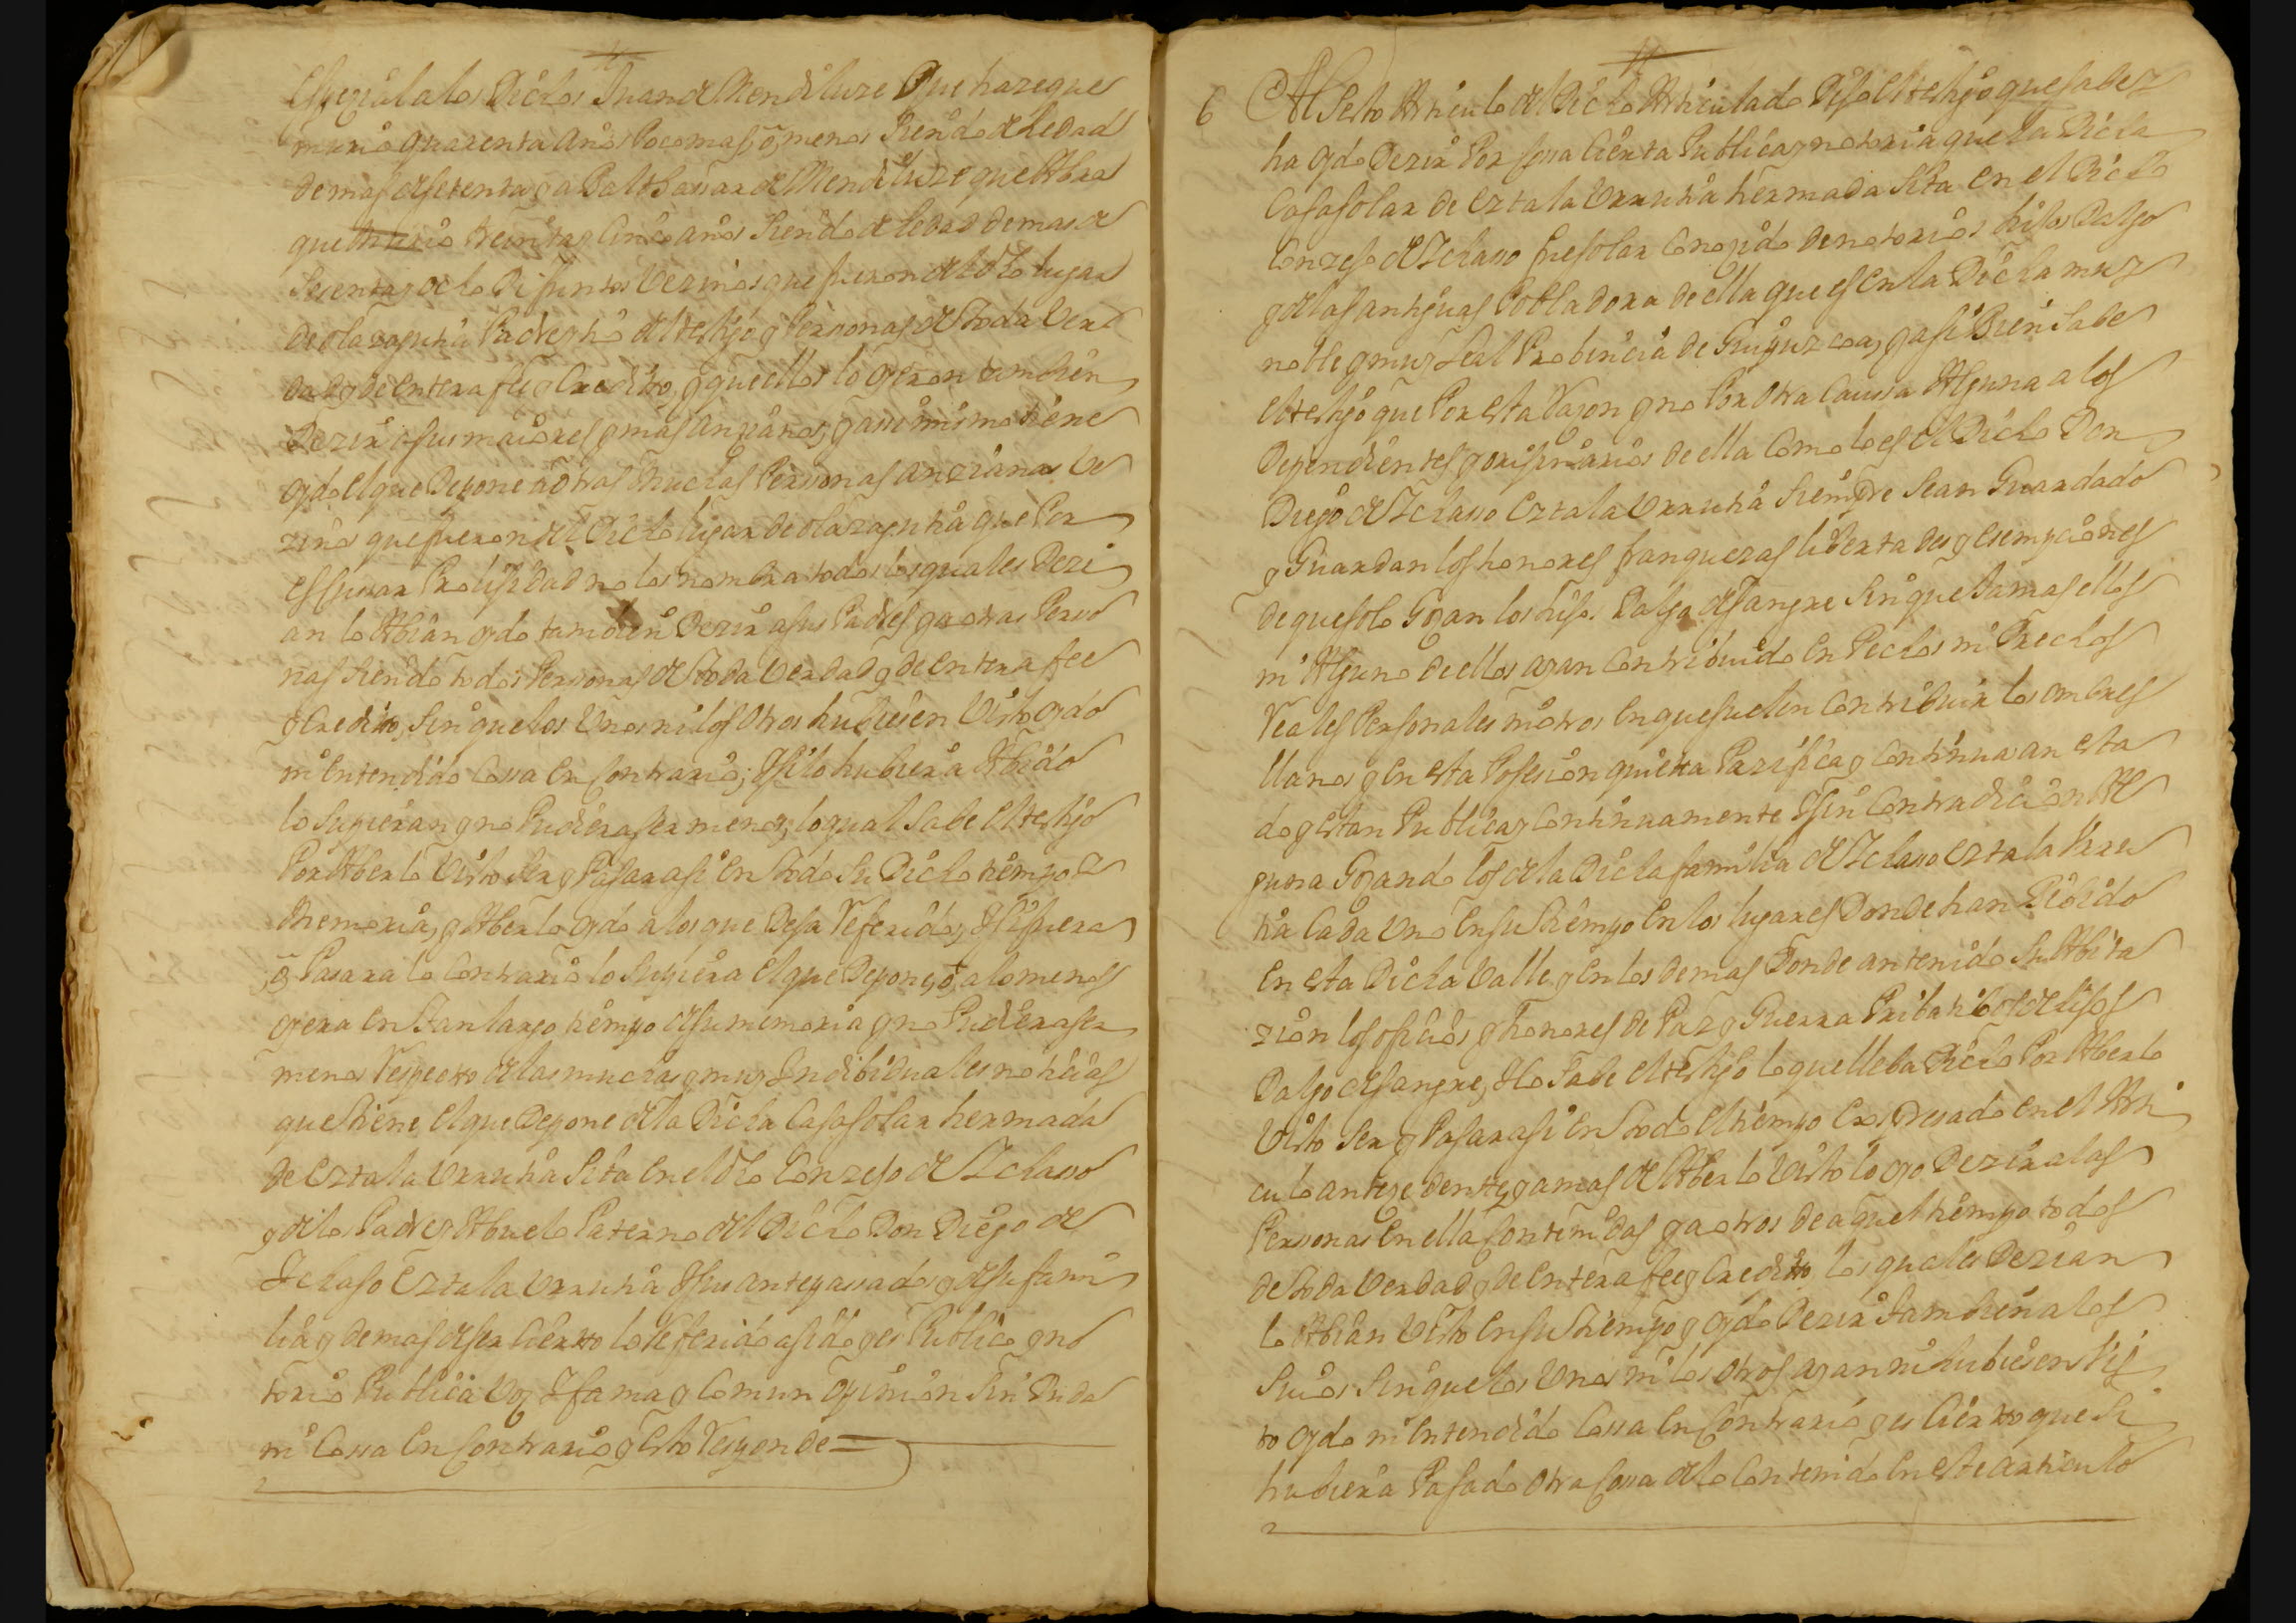 Espezial a los Dichos Juan de Mendiluze Que haze que
murio quarenta años Poco mas, o, menos siendo de hedad
de mas de setenta y a Balthassar de Mendiluze que Abra
que murio treinta y Cinco años siendo de hedad de mas de
Sesenta y ocho Difuntos Vezinos que fueron del dho lugar
de olazagutia Padre y tio del testigo y Personas de toda Ver
dad y de entera fee y Credito, y que ellos lo oyeron tambien
Dezir a sus maiores y mas anzianos, y assi mismo tiene
oydo el que Depone a otras muchas Personas anzianas Ve
zinos que fueron del Dicho lugar de olazagutia que Por
escusar Prolijidad no los nombra todos los quales Dezi
an lo Abian oydo tambien Dezir a sus Padres y a otras Perso
nas siendo todos Personas de toda Verdad y de entera fee
y Credito, sin que los Unos ni los otros hubiesen Visto oydo
ni entendido Cossa en Contrario; Y si lo hubiera Abido
lo supieran y no Pudiera ser menos, lo qual Sabe el testigo
Por Aberlo Visto ser y Pasar asi en todo su Dicho tiempo y
memoria, y Aberlo oydo a los que Deja Referidos, Y si fuera
,o, Pasara lo Contrario lo supiera el que Depone, o, a lo menos
oyera en tan largo tiempo de su memoria y no Pudiera ser
menos Respecto de las muchas y muy Indibiduales noticias
que tiene el que Depone de la Dicha Casa solar hermada
de Eztala Urrutia Sita en el dho Conzejo de Ychasso
y de los Padre y Abuelo Paterno del Dicho Don Diego de
Ychaso Eztala Urrutia Y sus antepassados y de su fami
lia y demas de ser Cierto lo Referido a sido y es Publico y no
torio Publica Voz Y fama y Comun opinion sin Duda
ni Cossa en Contrario y esto Responde=
6 Al Sesto Articulo del Dicho Articulado Dijo el testigo que sabe y
ha oydo Dezir Por cossa Cierta Publica y notoria que la Dicha
Casa solar de Eztala Urrutia hermada Sita en el Dicho
Conzejo de Ychasso fue solar Conozido de notorios hijos Dalgo
y de las antiguas Pobladora de ella que es en la Dicha muy
noble y muy Leal Probincia de Guipuzcoa, y asi Bien Sabe
el testigo que Por esta Razon y no Por otra Caussa Alguna a los
Dependientes y orijinarios de ella Como lo es el Dicho Don
Diego de Ychasso Eztala Urrutia Siempre se an Guardado
y Guardan los honores franquezas libertades y esempciones
de que solo Gozan los hijos Dalgo de Sangre sin que Jamas ellos
ni Alguno de ellos ayan Contribuido en Pechos ni Prechos
Reales Personales ni otros en que suelen Contribuir los ombres
llanos y en esta Posesion quieta Pazifica y Continua an esta
do y estan Publica y Continuamente Y sin Contradicion Al
guna Gozando los de la Dicha familia de Ychasso Eztala Urru
tia Cada Uno en su tiempo en los lugares Donde han Bibido
en esta Dicha Valle y en los demas Donde an tenido su Abita
zion los oficios y honores de Paz y Guerra Pribatibos de hijos
Dalgo de Sangre, Y lo Sabe el testigo lo que lleba Dicho Por Aberlo
Visto ser y Pasar asi en todo el tiempo Expresado en el Arti
culo antezedente, y a mas de Aberlo Visto lo oyo Dezir a las
Personas en ella Contenidas y a otros de aquel tiempo todos
de toda Verdad y de entera fee y Credito los quales Dezian
lo Abian Visto en su tiempo y oydo Dezir tambien a los
Suios sin que los Unos ni los otros ayan ni hubiesen Vis
to oydo ni entendido Cossa en Contrario y es Cierto que si
hubiera Pasado otra Cossa de lo Contenido en este articulo